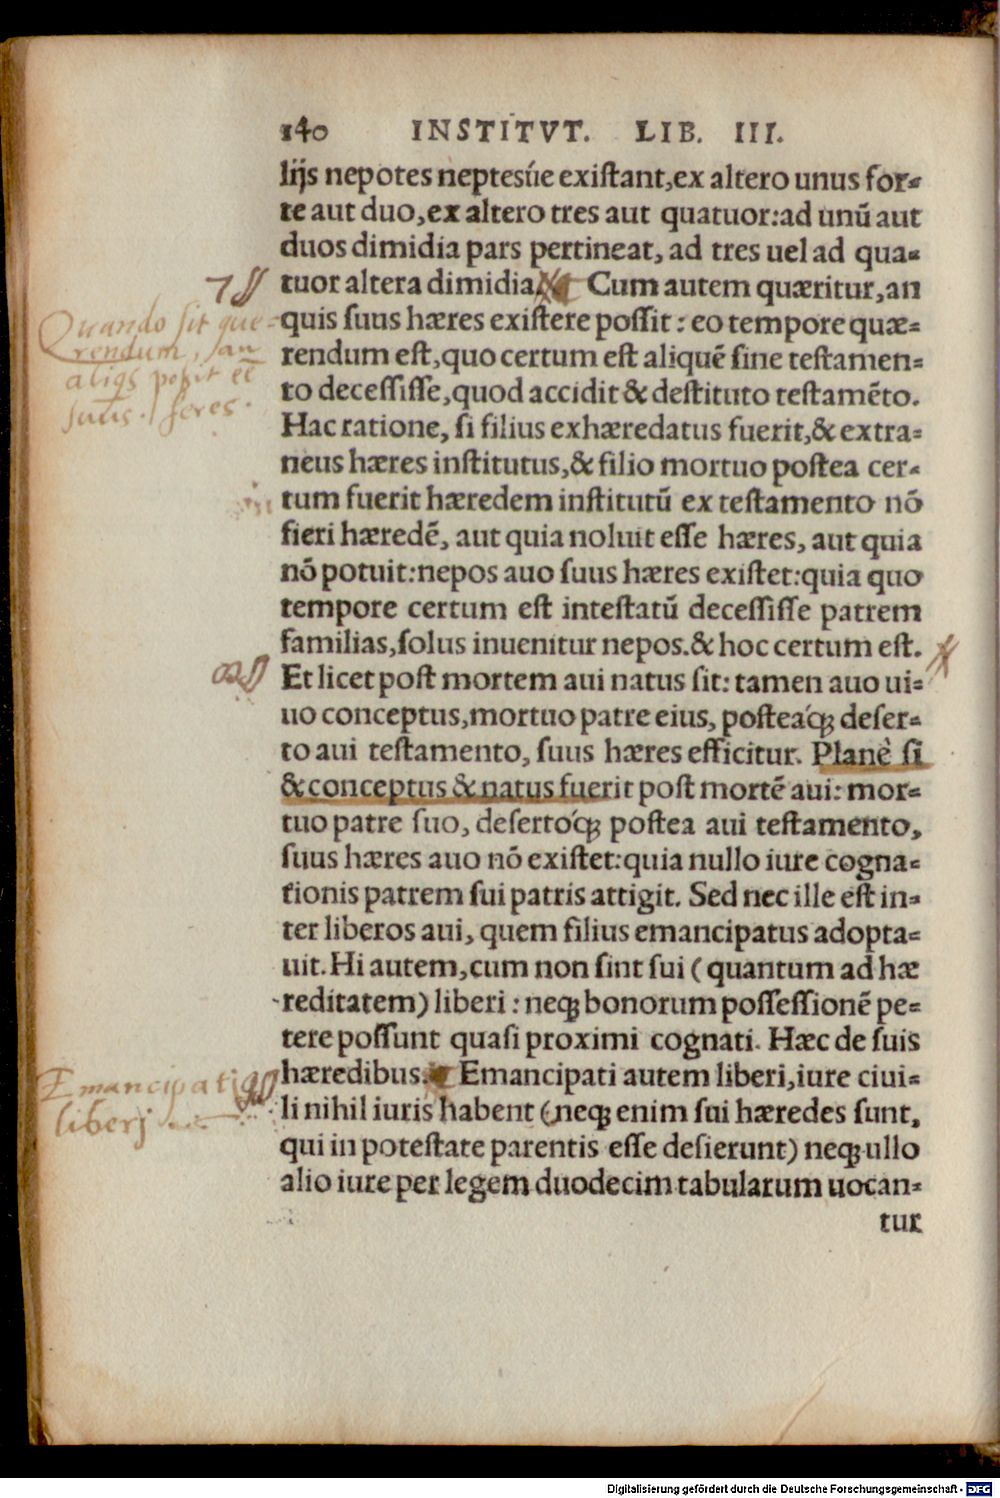 140 INSTITVT. LIB. III.
lijs nepotes neptesúe exiſtant, ex altero unus for-
te aut duo, ex altero tres aut quatuor: ad unũ aut
duos dimidia pars pertineat, ad tres uel ad qua-
tuor altera dimidia. Cum autem quæritur, an
quis ſuus hæres exiſtere poſsit: eo tempore quæ-
rendum eſt, quo certum eſt aliquẽ ſine teſtamen-
to deceſſiſſe, quod accidit & deſtituto teſtamẽto.
Hac ratione, ſi filius exhæredatus fuerit, & extra-
neus hæres inſtitutus, & filio mortuo poſtea cer-
tum fuerit hæredem inſtitutũ ex teſtamento nõ
fieri hæredẽ, aut quia noluit eſſe hæres, aut quia
nõ potuit: nepos auo ſuus hæres exiſtet: quia quo
tempore certum eſt inteſtatũ deceſſiſſe patrem
familias, ſolus inuenitur nepos. & hoc certum eſt.
Et licet poſt mortem aui natus ſit: tamen auo ui-
uo conceptus, mortuo patre eius, poſteáꝙ deſer-
to aui teſtamento, ſuus hæres efficitur. Planè ſi
& conceptus & natus fuerit poſt mortẽ aui: mor-
tuo patre ſuo, deſertóꝙ poſtea aui teſtamento,
ſuus hæres auo nõ exiſtet: quia nullo iure cogna-
tionis patrem ſui patris attigit. Sed nec ille eſt in-
ter liberos aui, quem filius emancipatus adopta-
uit. Hi autem, cum non ſint ſui (quantum ad hæ
reditatem) liberi: neqꝫ bonorum poſſeſſionẽ pe-
tere poſſunt quaſi proximi cognati. Hæc de ſuis
hæredibus. Emancipati autem liberi, iure ciui-
li nihil iuris habent (neqꝫ enim ſui hæredes ſunt,
qui in poteſtate parentis eſſe deſierunt) neqꝫ ullo
alio iure per legem duodecim tabularum uocan-
tur
7
Quando sit que-
rendum, an
aliqs possit eē
suus heres.
8
Emancipati
liberj
Digitalisierung gefördert durch die Deutsche Forschungsgemeinschaft - DFG